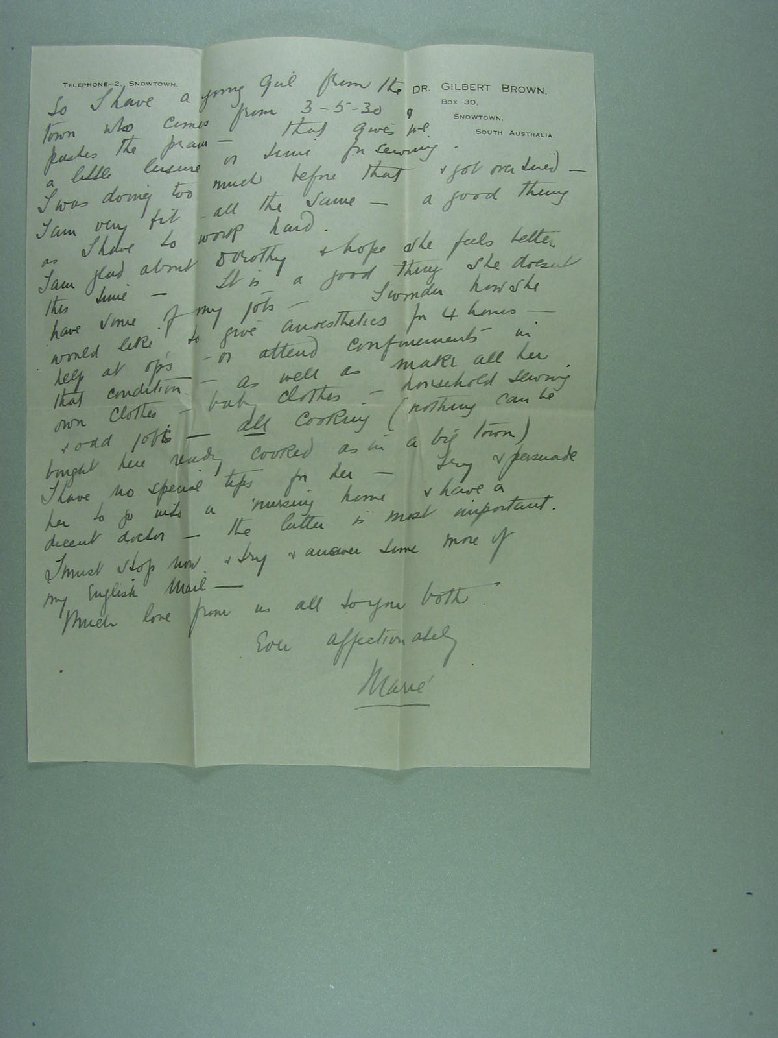 TELEPHONE-2, SNOWTOWN.
DR. GILBERT BROWN.
BOX 30,
SNOWTOWN,
SOUTH AUSTRALIA
So I have a young girl from the
town who comes from 3-5-30 &
pushes the pram - that gives me
a little leisure or time for sewing.
I was doing too much before that & got over tired -
I am very fit - all the same - a good thing
as I have to work hard.
I am glad about Dorothy & hope she feels better
this time - It is a good thing she doesn't
have some of my jobs - I wonder how she
would like to give anaesthetics for 4 hours -
help at op's - or attend confinements in
that condition - as well as make all her
own clothes - baby clothes - household sewing
& odd jobs - all cooking (nothing can be
bought here ready cooked as in a big town)
I have no special tips for her - try & persuade
her to go into a nursing home & have a
decent doctor - the latter is most important.
I must stop now & try & answer some more of
my English Mail -
Much love from us all to you both
Ever affectionately
Marie